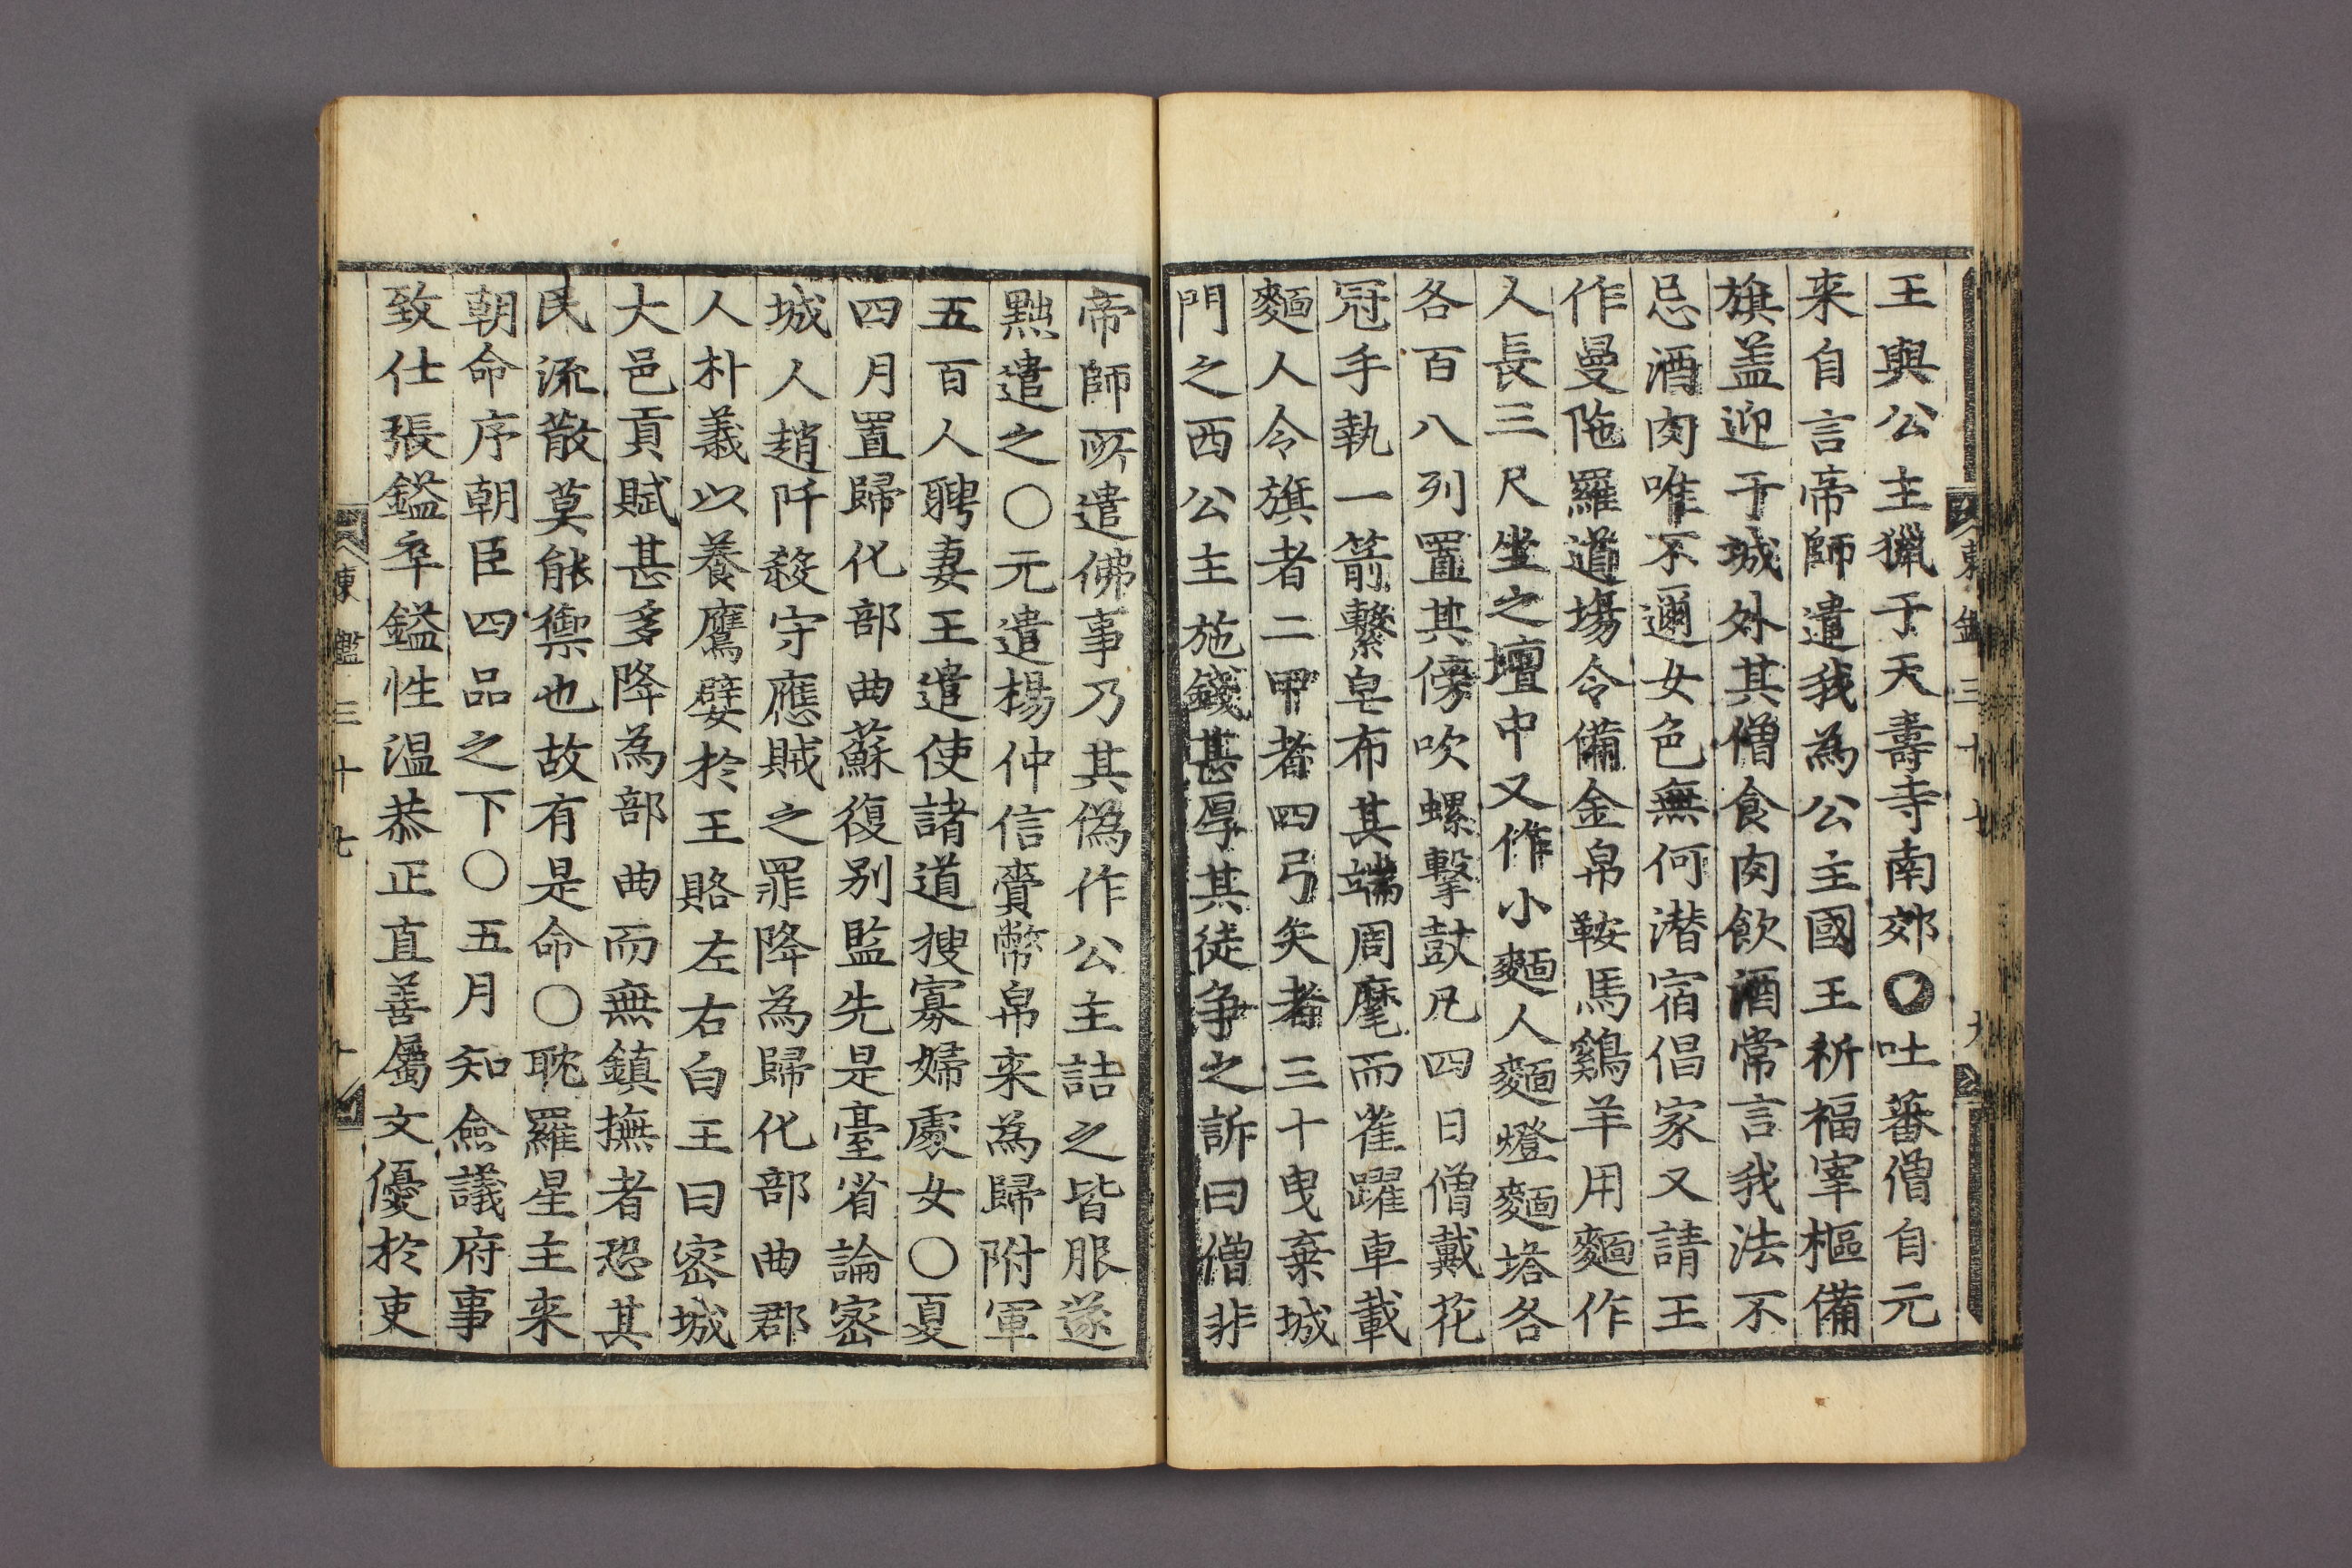 王與公主獵于天壽寺南郊○吐蕃僧自元
来自言帝師遣我為公主國王祈福宰樞備
旗盖迎于城外其僧食肉飲酒常言我法不
忌酒肉唯不邇女色無何潜宿倡家又請王
作曼陁羅道場令備金帛鞍馬鷄羊用麵作
人長三尺坐之壇中又作小麵人麵燈麵塔各
各百八列置其傍吹螺擊鼓凡四日僧戴花
冠手執一箭繫皂布其端周麾而雀躍車載
麵人令旗者二甲者四弓矢者三十曳棄城
門之西公主施錢甚厚其徒争之訴曰僧非
東鑑三十七
九
帝師所遣佛事乃其偽作公主詰之皆服遂
黜遣之○元遣楊仲信賫幣帛来為歸附軍
五百人聘妻王遣使諸道搜寡婦處女○夏
四月置歸化部曲蘇復别監先是臺省論密
城人趙阡殺守應賊之罪降為歸化部曲郡
人朴義以養鷹嬖於王賂左右白王曰密城
大邑貢賦甚多降為部曲而無鎮撫者恐其
民流散莫能禦也故有是命○耽羅星主来
朝命序朝臣四品之下○五月知僉議府事
致仕張鎰卒鎰性温恭正直善屬文優於吏
東鑑三十七
十